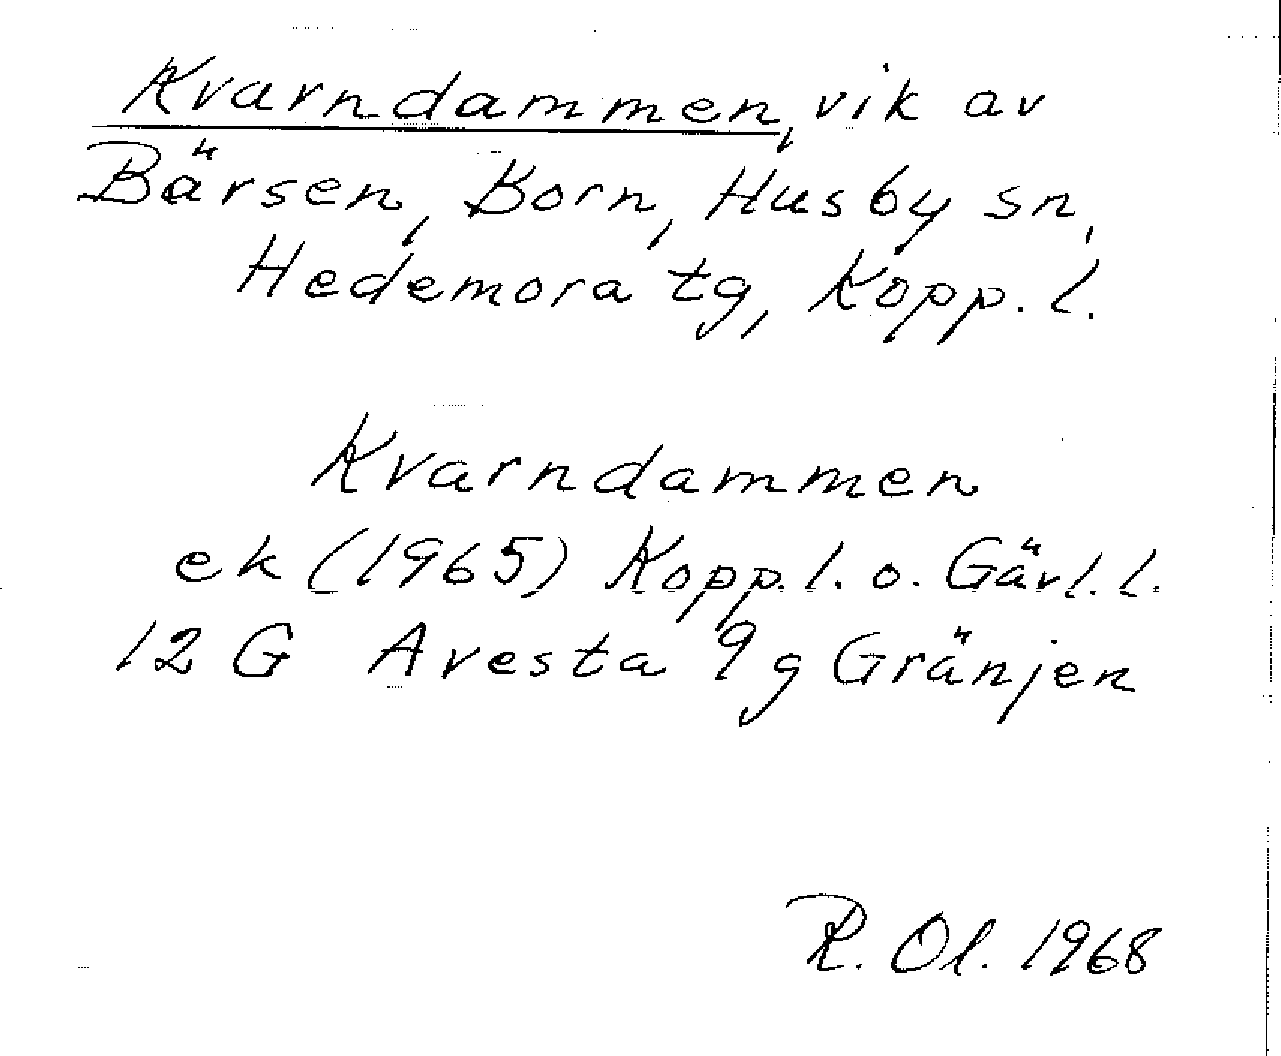 Kvarndammen, vik av
Bärsen, Born, Husby sn,
Hedemora tg, Kopp. l.
Kvarndammen
ek (1965) Kopp. l. o. Gävl. l.
12 G Avesta 9 g Gränjen
R. Ol. 1968